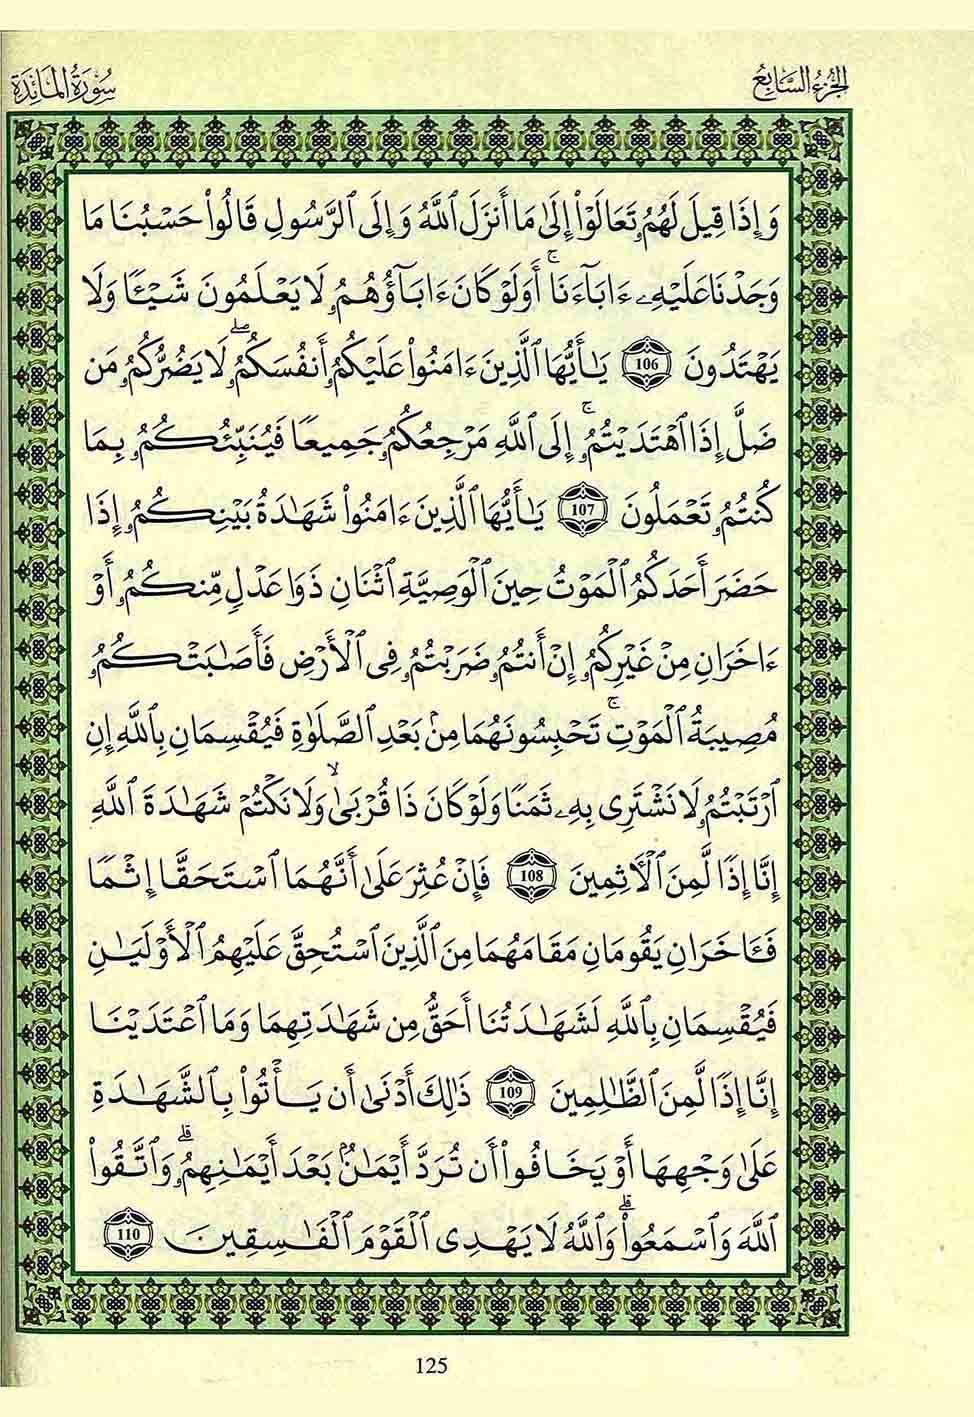 الجزء السابع
سورة المائدة
وَإِذَا قِيلَ لَهُمُۥ تَعَالَوْا۟ إِلَىٰ مَا أَنزَلَ ٱللَّهُ وَإِلَى ٱلرَّسُولِ قَالُوا۟ حَسْبُنَا مَا
وَجَدْنَا عَلَيْهِۦ ءَابَآءَنَاۚ أَوَلَوْ كَانَ ءَابَآؤُهُمُۥ لَا يَعْلَمُونَ شَيْـًٔا وَلَا
يَهْتَدُونَ 106 يَـٰأَيُّهَا ٱلَّذِينَ ءَامَنُوا۟ عَلَيْكُمُۥ أَنفُسَكُمُۥۖ لَا يَضُرُّكُمُۥ مَن
ضَلَّ إِذَا ٱهْتَدَيْتُمُۥۚ إِلَى ٱللَّهِ مَرْجِعُكُمُۥ جَمِيعًا فَيُنَبِّئُكُمُۥ بِمَا
كُنتُمُۥ تَعْمَلُونَ 107 يَـٰأَيُّهَا ٱلَّذِينَ ءَامَنُوا۟ شَهَـٰدَةُ بَيْنِكُمُۥ إِذَا
حَضَرَ أَحَدَكُمُ ٱلْمَوْتُ حِينَ ٱلْوَصِيَّةِ ٱثْنَانِ ذَوَا عَدْلٍ مِّنكُمُۥ أَوْ
ءَاخَرَانِ مِنْ غَيْرِكُمُۥ إِنْ أَنتُمُۥ ضَرَبْتُمُۥ فِى ٱلْأَرْضِ فَأَصَـٰبَتْكُمُۥ
مُصِيبَةُ ٱلْمَوْتِۚ تَحْبِسُونَهُمَا مِنۢ بَعْدِ ٱلصَّلَوٰةِ فَيُقْسِمَانِ بِٱللَّهِ إِنِ
ٱرْتَبْتُمُۥ لَا نَشْتَرِى بِهِۦ ثَمَنًا وَلَوْ كَانَ ذَا قُرْبَىٰۙ وَلَا نَكْتُمُ شَهَـٰدَةَ ٱللَّهِ
إِنَّا إِذًا لَّمِنَ ٱلْأَثِمِينَ 108 فَإِنْ عُثِرَ عَلَىٰ أَنَّهُمَا ٱسْتَحَقَّا إِثْمًا
فَـَٔاخَرَانِ يَقُومَانِ مَقَامَهُمَا مِنَ ٱلَّذِينَ ٱسْتُحِقَّ عَلَيْهِمُ ٱلْأَوْلَيَـٰنِ
فَيُقْسِمَانِ بِٱللَّهِ لَشَهَـٰدَتُنَا أَحَقُّ مِن شَهَـٰدَتِهِمَا وَمَا ٱعْتَدَيْنَا
إِنَّا إِذًا لَّمِنَ ٱلظَّـٰلِمِينَ 109 ذَٰلِكَ أَدْنَىٰ أَن يَأْتُوا۟ بِٱلشَّهَـٰدَةِ
عَلَىٰ وَجْهِهَا أَوْ يَخَافُوا۟ أَن تُرَدَّ أَيْمَـٰنٌۢ بَعْدَ أَيْمَـٰنِهِمُۥۗ وَٱتَّقُوا۟
ٱللَّهَ وَٱسْمَعُوا۟ۗ وَٱللَّهُ لَا يَهْدِى ٱلْقَوْمَ ٱلْفَـٰسِقِينَ 110
125